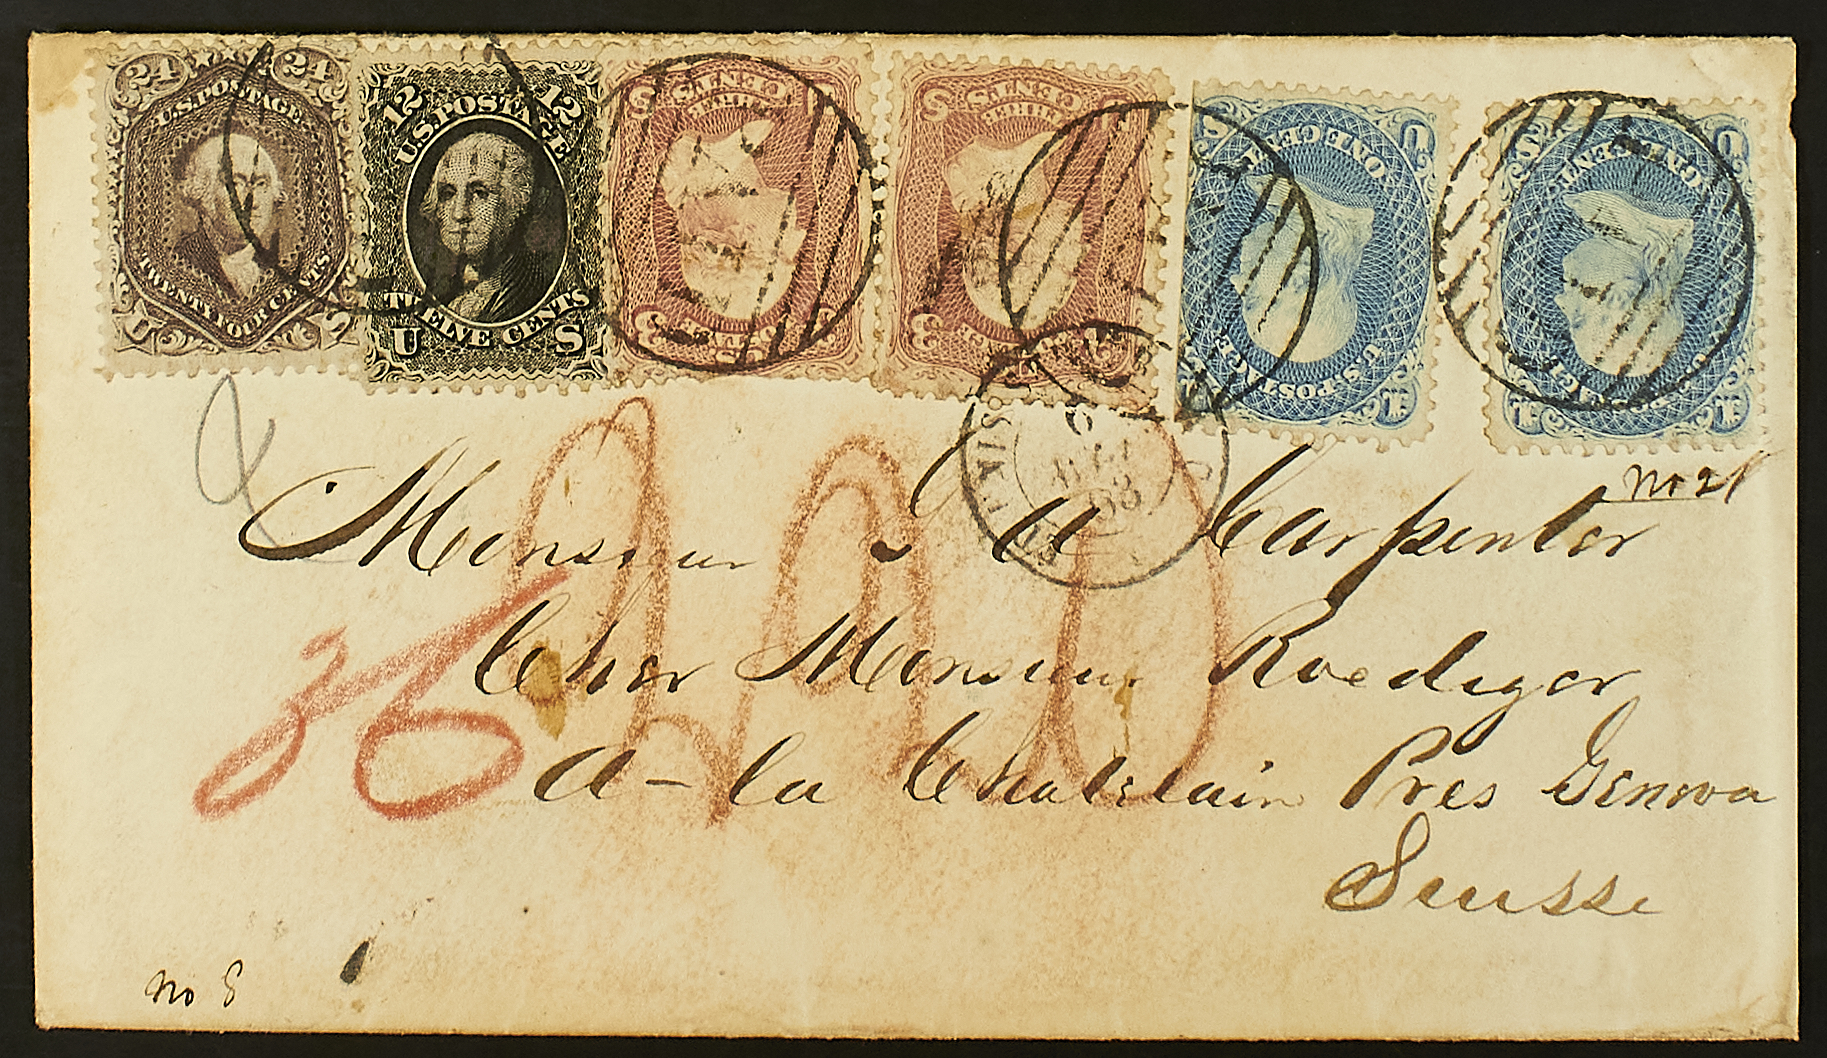 24 24
U.S. POSTAGE.
TWENTY FOUR CENTS.
U S
12 12
U.S. POSTAGE
TWELVE CENTS
U S
U S
THREE CENTS
3 3
U S
THREE CENTS
3 3
U S
ONE CENT
U.S. POSTAGE
1
U S
ONE CENT
U.S. POSTAGE
1 1
6
63
no 21
Monsieur G A Carpenter
Cher Monsieur Roediger
A - la Chatelain Pres Geneva
Suisse
36
no 8